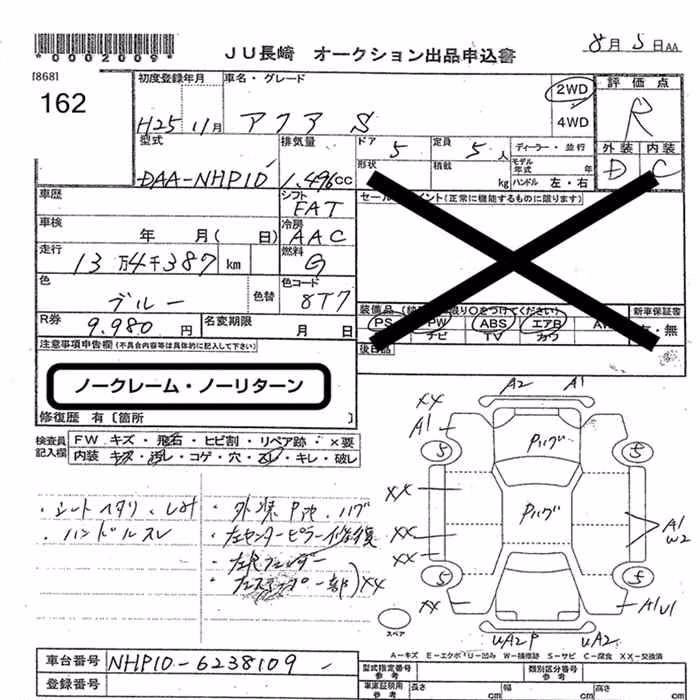 JU長崎 オークション出品申込書
8月5日AA
*0002009*
[868]
162
初度登録年月 車名・グレード
H25 11月 アクア S
2WD
4WD
評価点
R
外装 内装
D C
型式 排気量
DAA-NHP10 1.496cc
ドア 5 定員 5人 ディーラー・並行
形状 積載 kg モデル年式 年
ハンドル 左・右
車歴 シフト FAT
車検 年 月( 日) 冷房 AAC
走行 13万4千387 km 燃料 G
色 ブルー 色替 色コード 8T7
R券 9.980円 名変期限 月 日
(正常に機能するものに限ります)
装備品
新車保証書
PS PW ABS エアB
ナビ TV カワ
無
後日品
注意事項申告欄(不具合内容等は具体的に記入して下さい)
ノークレーム・ノーリターン
修復歴 有〔箇所 〕
検査員記入欄
FW キズ・飛石・ヒビ割・リペア跡・×要
内装 キズ・汚レ・コゲ・穴・スレ・キレ・破レ
・シートヘタリ、シミ
・ハンドルスレ
・外装 P
・左センターピラー修復
XX
A2 A1
XX
A1
5 5
Pハゲ
Pハゲ
XX
XX
XX
A1
W2
5 5
XX
A1U1
UA2P UA2
スペア
A-キズ E-エクボ U-凹み W-補修跡 S-サビ C-腐食 XX-交換済
車台番号 NHP10-6238109
登録番号
型式指定番号 参考
類別区分番号 参考
長さ cm 幅 cm 高さ cm